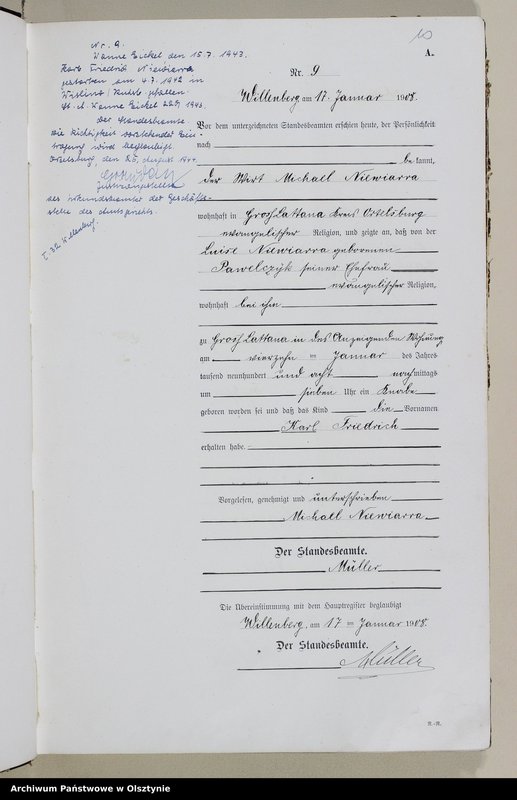 10
A.
Nr. 9.
Wanne Eickel den 15.7.1943.
Karl Friedrich Niewiarra
gestorben am 4.7.1942 in
gefallen.
St. A. Wanne Eickel 1943.
Der Standesbeamte
Die Richtigkeit vorstehender Ein-
tragung wird beglaubigt.
Ortelsburg, den
Justizangestellte
als Urkundsbeamter der Geschäfts-
stelle des Amtsgerichts.
Nr. 9
Willenberg am 17. Januar 1908.
Vor dem unterzeichneten Standesbeamten erschien heute, der Persönlichkeit
nach
be kannt,
der Wirt Michael Niewiarra
wohnhaft in Groß Lattana Kreis Ortelsburg
evangelischer Religion, und zeigte an, daß von der
Luise Niewiarra geborenen
Pawelczyk seiner Ehefrau
evangelischer Religion,
wohnhaft bei ihm
zu Groß Lattana in des Anzeigenden Wohnung
am vierzehn ten Januar des Jahres
tausend neunhundert und acht nachmittags
um sieben Uhr ein Knabe
geboren worden sei und daß das Kind die Vornamen
Karl Friedrich
erhalten habe.
Vorgelesen, genehmigt und unterschrieben
Michael Niewiarra
Der Standesbeamte.
Müller
Die Übereinstimmung mit dem Hauptregister beglaubigt
Willenberg, am 17 ten Januar 1908.
Der Standesbeamte.
Müller
R.-R.
Archiwum Państwowe w Olsztynie